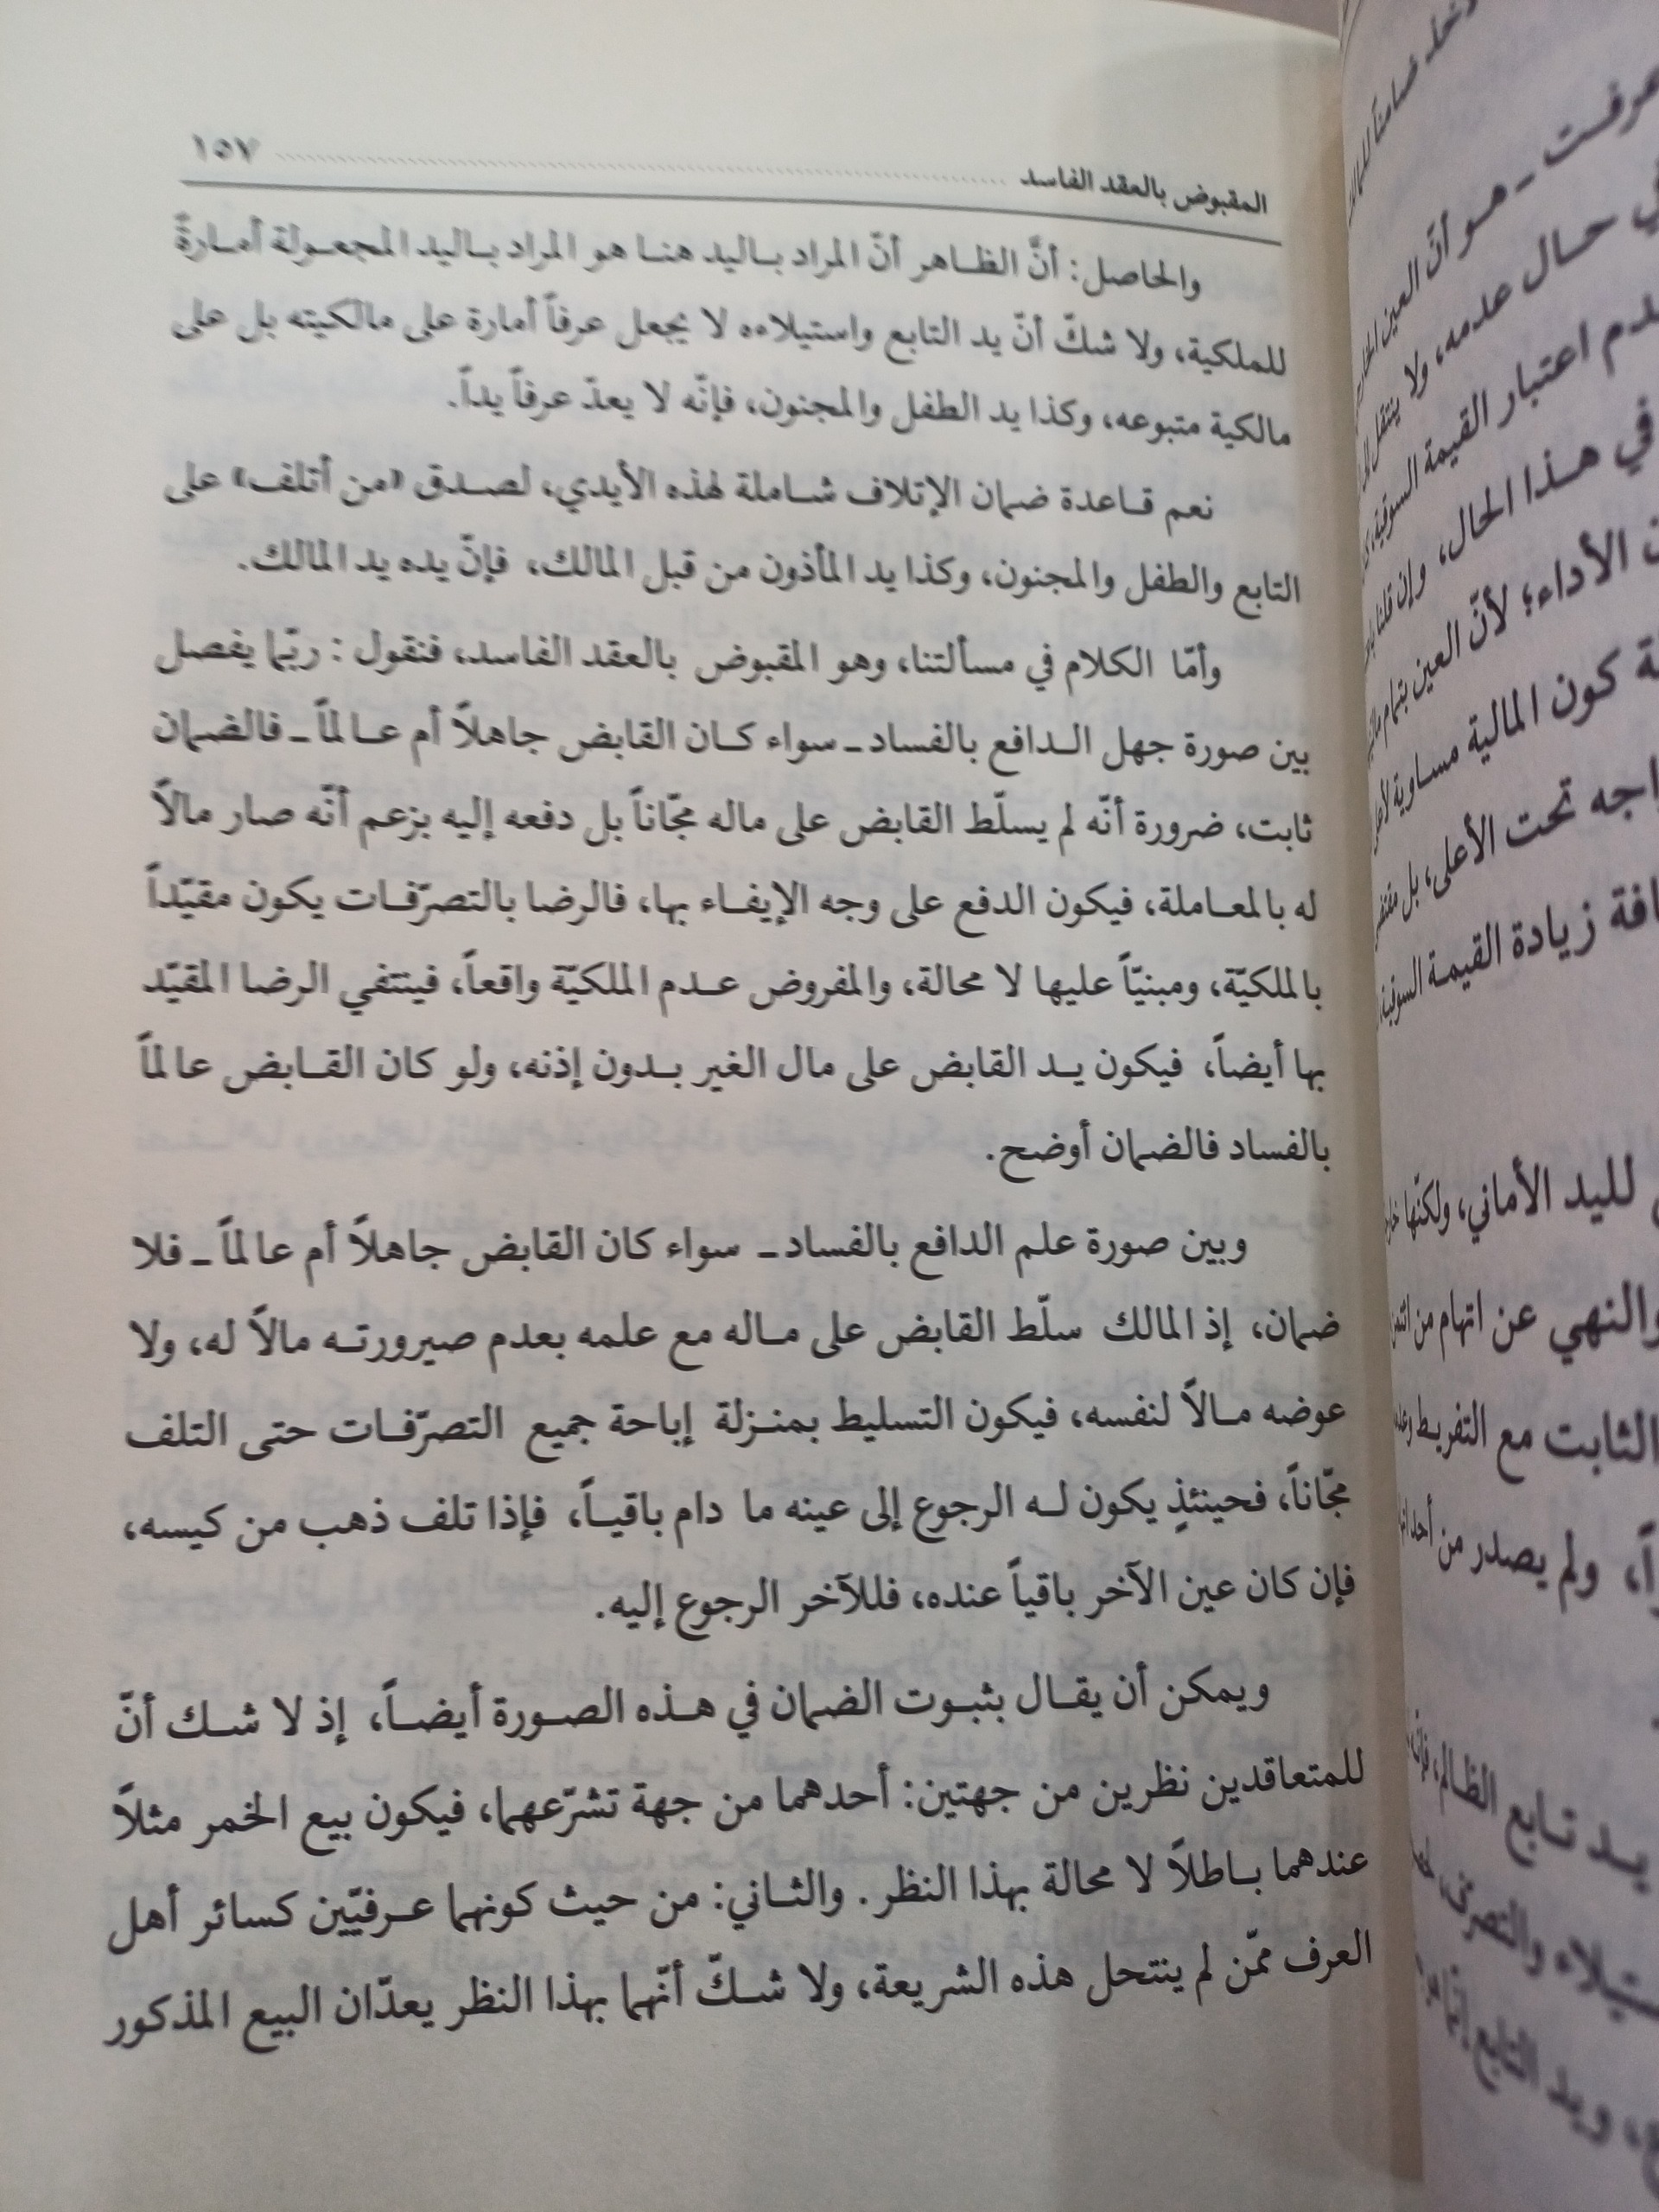 المقبوض بالعقد الفاسد ........................................ ١٥٧
والحاصل: أنَّ الظاهر أنّ المراد باليد هنا هو المراد باليد المجعولة أمارةً
للملكية، ولا شكّ أنّ يد التابع واستيلاءه لا يجعل عرفاً أمارة على مالكيته بل على
مالكية متبوعه، وكذا يد الطفل والمجنون، فإنّه لا يعدّ عرفاً يداً.
نعم قاعدة ضمان الإتلاف شاملة لهذه الأيدي، لصدق «من أتلف» على
التابع والطفل والمجنون، وكذا يد المأذون من قبل المالك، فإنّ يده يد المالك.
وأمّا الكلام في مسألتنا، وهو المقبوض بالعقد الفاسد، فنقول: ربّما يفصل
بين صورة جهل الدافع بالفساد ـ سواء كان القابض جاهلاً أم عالماً ـ فالضمان
ثابت، ضرورة أنّه لم يسلّط القابض على ماله مجّاناً بل دفعه إليه بزعم أنّه صار مالاً
له بالمعاملة، فيكون الدفع على وجه الإيفاء بها، فالرضا بالتصرّفات يكون مقيّداً
بالملكيّة، ومبنيّاً عليها لا محالة، والمفروض عدم الملكيّة واقعاً، فينتفي الرضا المقيّد
بها أيضاً، فيكون يد القابض على مال الغير بدون إذنه، ولو كان القابض عالماً
بالفساد فالضمان أوضح.
وبين صورة علم الدافع بالفساد ـ سواء كان القابض جاهلاً أم عالماً ـ فلا
ضمان، إذ المالك سلّط القابض على ماله مع علمه بعدم صيرورته مالاً له، ولا
عوضه مالاً لنفسه، فيكون التسليط بمنزلة إباحة جميع التصرّفات حتى التلف
مجّاناً، فحينئذٍ يكون له الرجوع إلى عينه ما دام باقياً، فإذا تلف ذهب من كيسه،
فإن كان عين الآخر باقياً عنده، فللآخر الرجوع إليه.
ويمكن أن يقال بثبوت الضمان في هذه الصورة أيضاً، إذ لا شك أنّ
للمتعاقدين نظرين من جهتين: أحدهما من جهة تشرّعهما، فيكون بيع الخمر مثلاً
عندهما باطلاً لا محالة بهذا النظر. والثاني: من حيث كونهما عرفيّين كسائر أهل
العرف ممّن لم ينتحل هذه الشريعة، ولا شكّ أنّهما بهذا النظر يعدّان البيع المذكور
ضامناً
عرفت ـ هو أنّ العين
حال عدمه، ولا ينتقل
اعتبار القيمة السوقية،
في هذا الحال، وإن قلنا
الأداء؛ لأنّ العين بتمام
كون المالية مساوية
تحت الأعلى، بل
زيادة القيمة السوقية
لليد الأماني، ولكنّها
والنهي عن اتهام من
الثابت مع التفريط
ولم يصدر من
يد تابع الظالم،
والتصرّف
ويد التابع